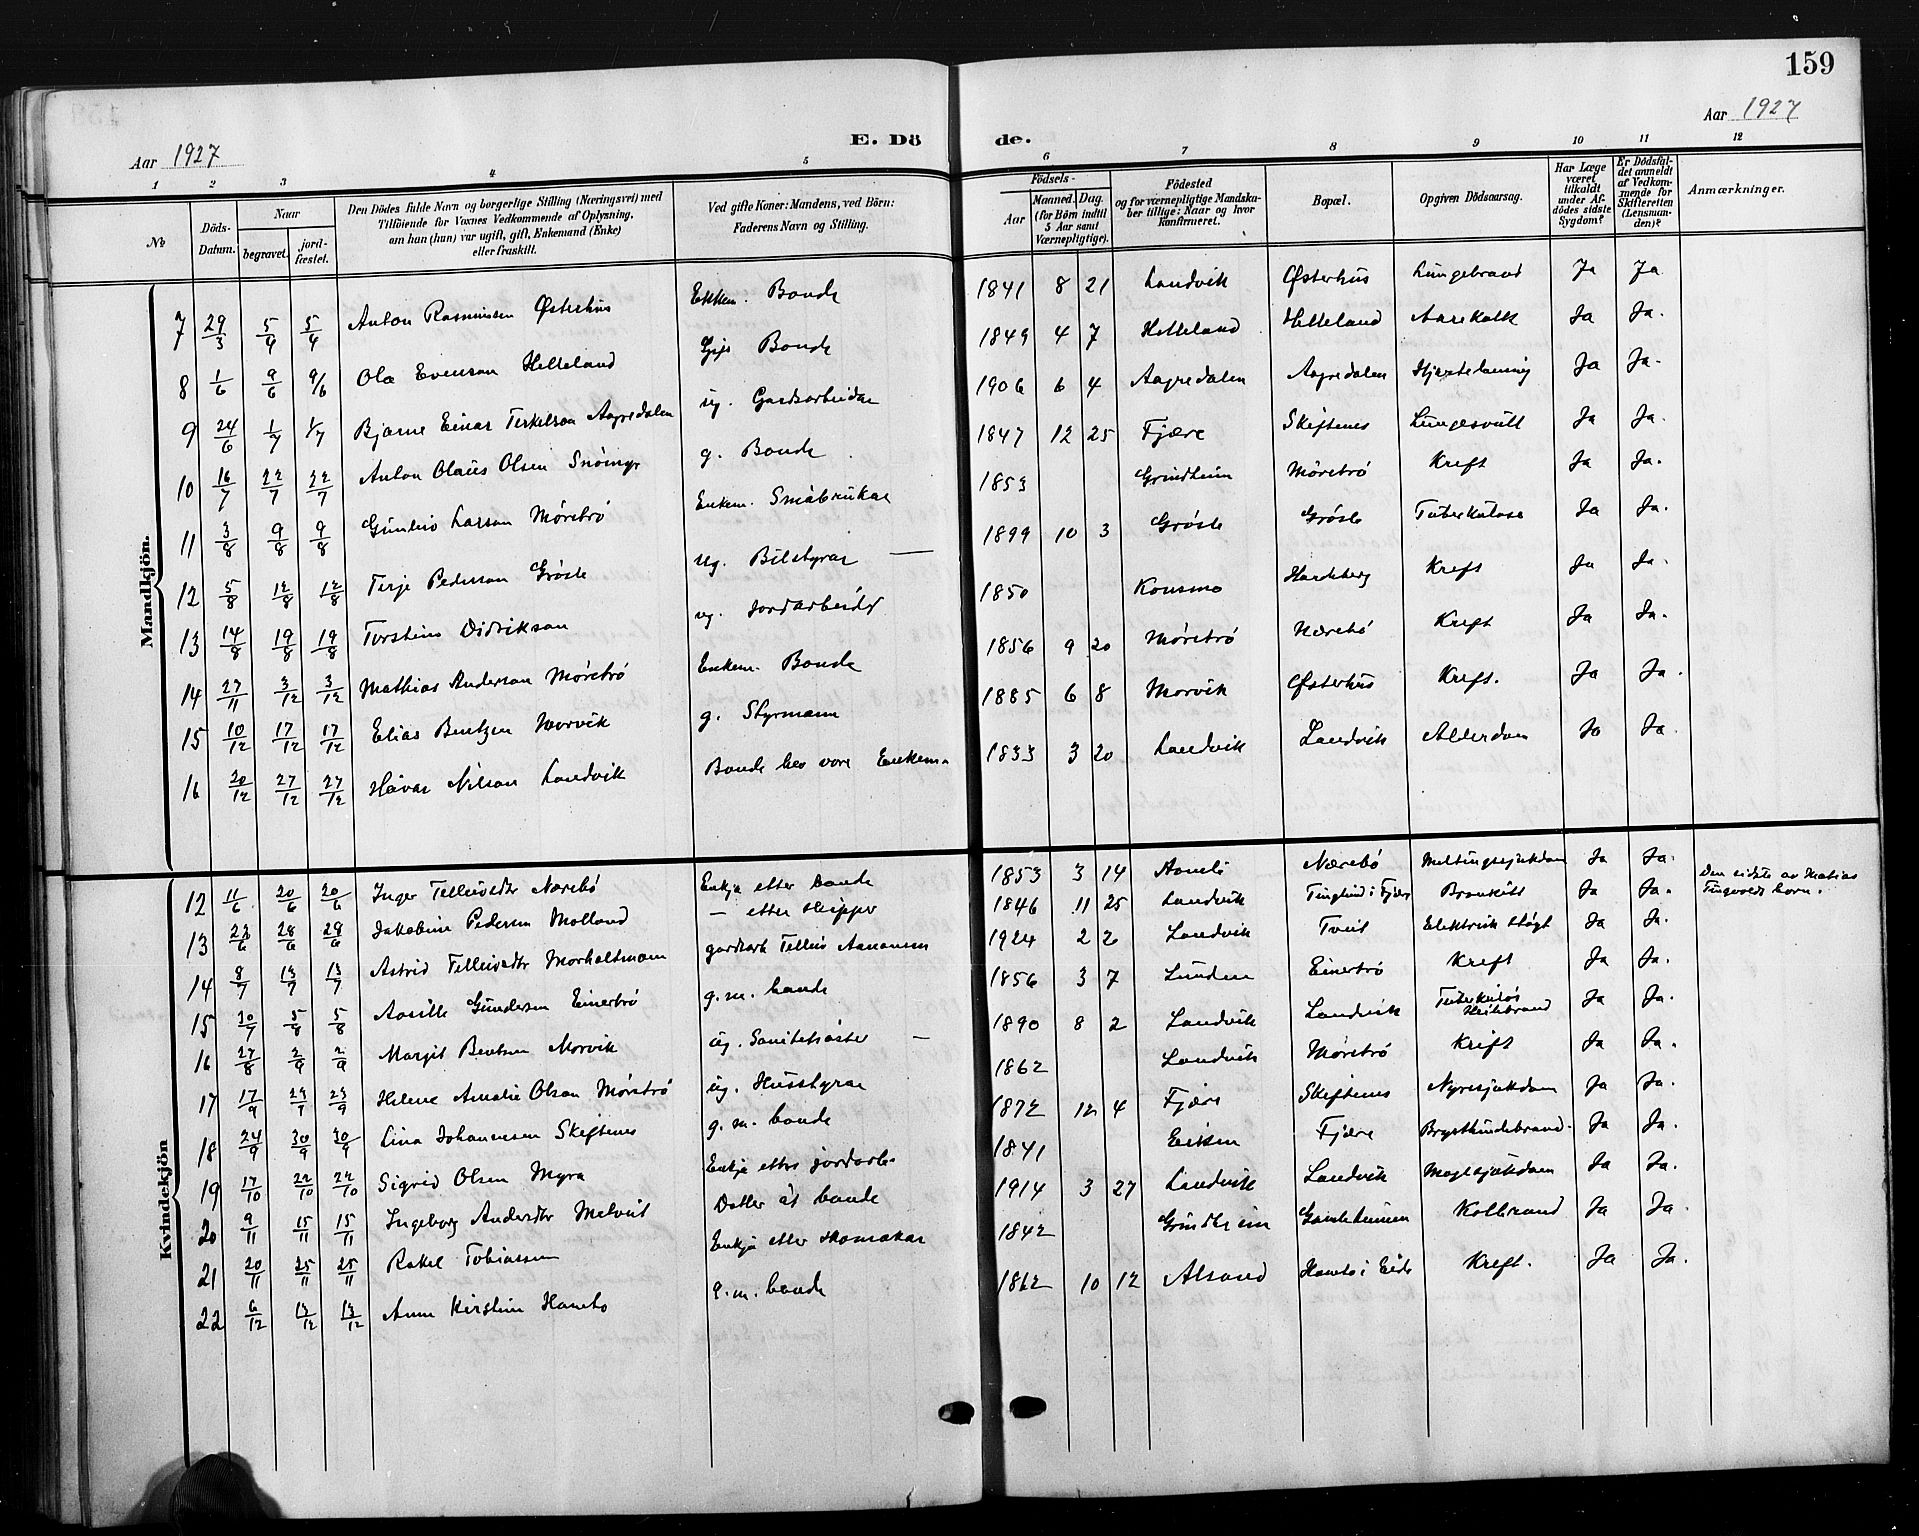 159
Aar 1927
E. Dö
de.
Aar 1927
1 2 3 4 5 6 7 8 9 10 11 12
No
Döds-Datum.
Naar
begravet.
jord-fæstet.
Den Dödes fulde Navn og borgerlige Stilling (Næringsvei) med
Tilföiende for Voxnes Vedkommende af Oplysning,
om han (hun) var ugift, gift, Enkemand (Enke)
eller fraskilt.
Ved gifte Koner: Mandens, ved Börn:
Faderens Navn og Stilling.
Födsels-
Aar
Maaned. Dag.
(for Börn indtil
5 Aar samt
Værnepligtige).
Födested
og for værnepligtige Mandska-
ber tillige: Naar og hvor
konfirmeret.
Bopæl.
Opgiven Dödsaarsag.
Har Læge
været
tilkaldt
under Af-
dödes sidste
Sygdom?
Er Dödsfal-
det anmeldt
af Vedkom-
mende for
Skifteretten
(Lensman-
den)?
Anmærkninger.
Mandkjön.
7 29/3 5/4 5/4 Anton Rasmussen Østerhus Enkem. Bonde 1841 8 21 Landvik Østerhus Lungebrand Ja Ja
8 1/6 9/6 9/6 Ola Evenson Helleland Gift Bonde 1849 4 7 Helleland Helleland Aarekalk Ja Ja.
9 24/6 1/7 1/7 Bjarne Einar Terkelson Aagredalen ug. Gardsarbeidar 1906 6 4 Aagredalen Aagredalen Hjartelaming Ja Ja.
10 16/7 22/7 22/7 Anton Olaus Olsen Snömyr g. Bonde 1847 12 25 Fjære Skiftenes Lungesvull Ja Ja.
11 3/8 9/8 9/8 Larson Møretrø Enkem. Småbrukar 1853 Grindheim Møretrø Kreft Ja Ja.
12 5/8 12/8 12/8 Terje Pederson Grøsle ug. Bilstyrar — 1899 10 3 Grøsle Grøsle Tuberkulose Ja Ja.
13 14/8 19/8 19/8 Torstein Didrikson ug. Jordarbeider 1850 Konsmo Kreft Ja Ja.
14 27/11 3/12 3/12 Mathias Anderson Møretrø Enkem. Bonde 1856 9 20 Møretrø Nærebø Kreft Ja Ja.
15 10/12 17/12 17/12 Elias Bentzen Morvik g. Styrmann 1885 6 8 Morvik Østerhus Kreft. Ja Ja.
16 20/12 27/12 27/12 Håvar Nilson Landvik Bonde hev vore Enkem. 1833 3 20 Landvik Landvik Alderdom Ja Ja.
Kvindekjön
12 11/6 20/6 20/6 Inger Tellevsdtr Nærebø Enkja etter bonde 1853 3 14 Aamli Nærebø Meltingssjukdom Ja Ja.
13 22/6 28/6 28/6 Jakobine Pedersen Molland — etter Skipper 1846 11 25 Landvik i Fjære Bronkitt Ja Ja.
14 8/7 13/7 13/7 Astrid Tellevsdtr Morholtmoen gardsarb Tellev Aanonsen 1924 2 2 Landvik Tveit Elektrisk støyt Ja Ja.
15 30/7 5/8 5/8 Aasille Gundersen Einerbrø g.m. bonde 1856 3 7 Lunden Einerbrø Kreft Ja Ja.
16 27/8 2/9 2/9 Margit Bentsen Morvik ug. Sanitetsøster — 1890 8 2 Landvik Landvik Tuberkuløs Ja Ja.
17 17/9 23/9 23/9 Helene Amalie Olsen Møretrø ug. Husstyrar 1862 Landvik Møretrø Kreft Ja Ja.
18 24/9 30/9 30/9 Lina Johannesen Skiftenes g.m. bonde 1872 12 4 Fjære Skiftenes Nyresjukdom Ja Ja.
19 17/10 22/10 22/10 Sigrid Olsen Myra Enkja etter jordarb. 1841 Eiken Fjære Brysthindebrand Ja Ja.
20 9/11 15/11 15/11 Ingeborg Andersdtr Molveit Dotter åt bonde 1914 3 27 Landvik Landvik Magesjukdom Ja Ja.
21 20/11 25/11 25/11 Rakel Tobiassen Enkje etter skomakar 1842 Grindheim Gamleheimen Kolbrand Ja Ja.
22 6/12 13/12 13/12 Anne Kirstine Hamto g.m. bonde 1862 10 12 Alsand Hamto i Eide Kreft. Ja Ja.
Den sidste av Matias
Tingvolds born.